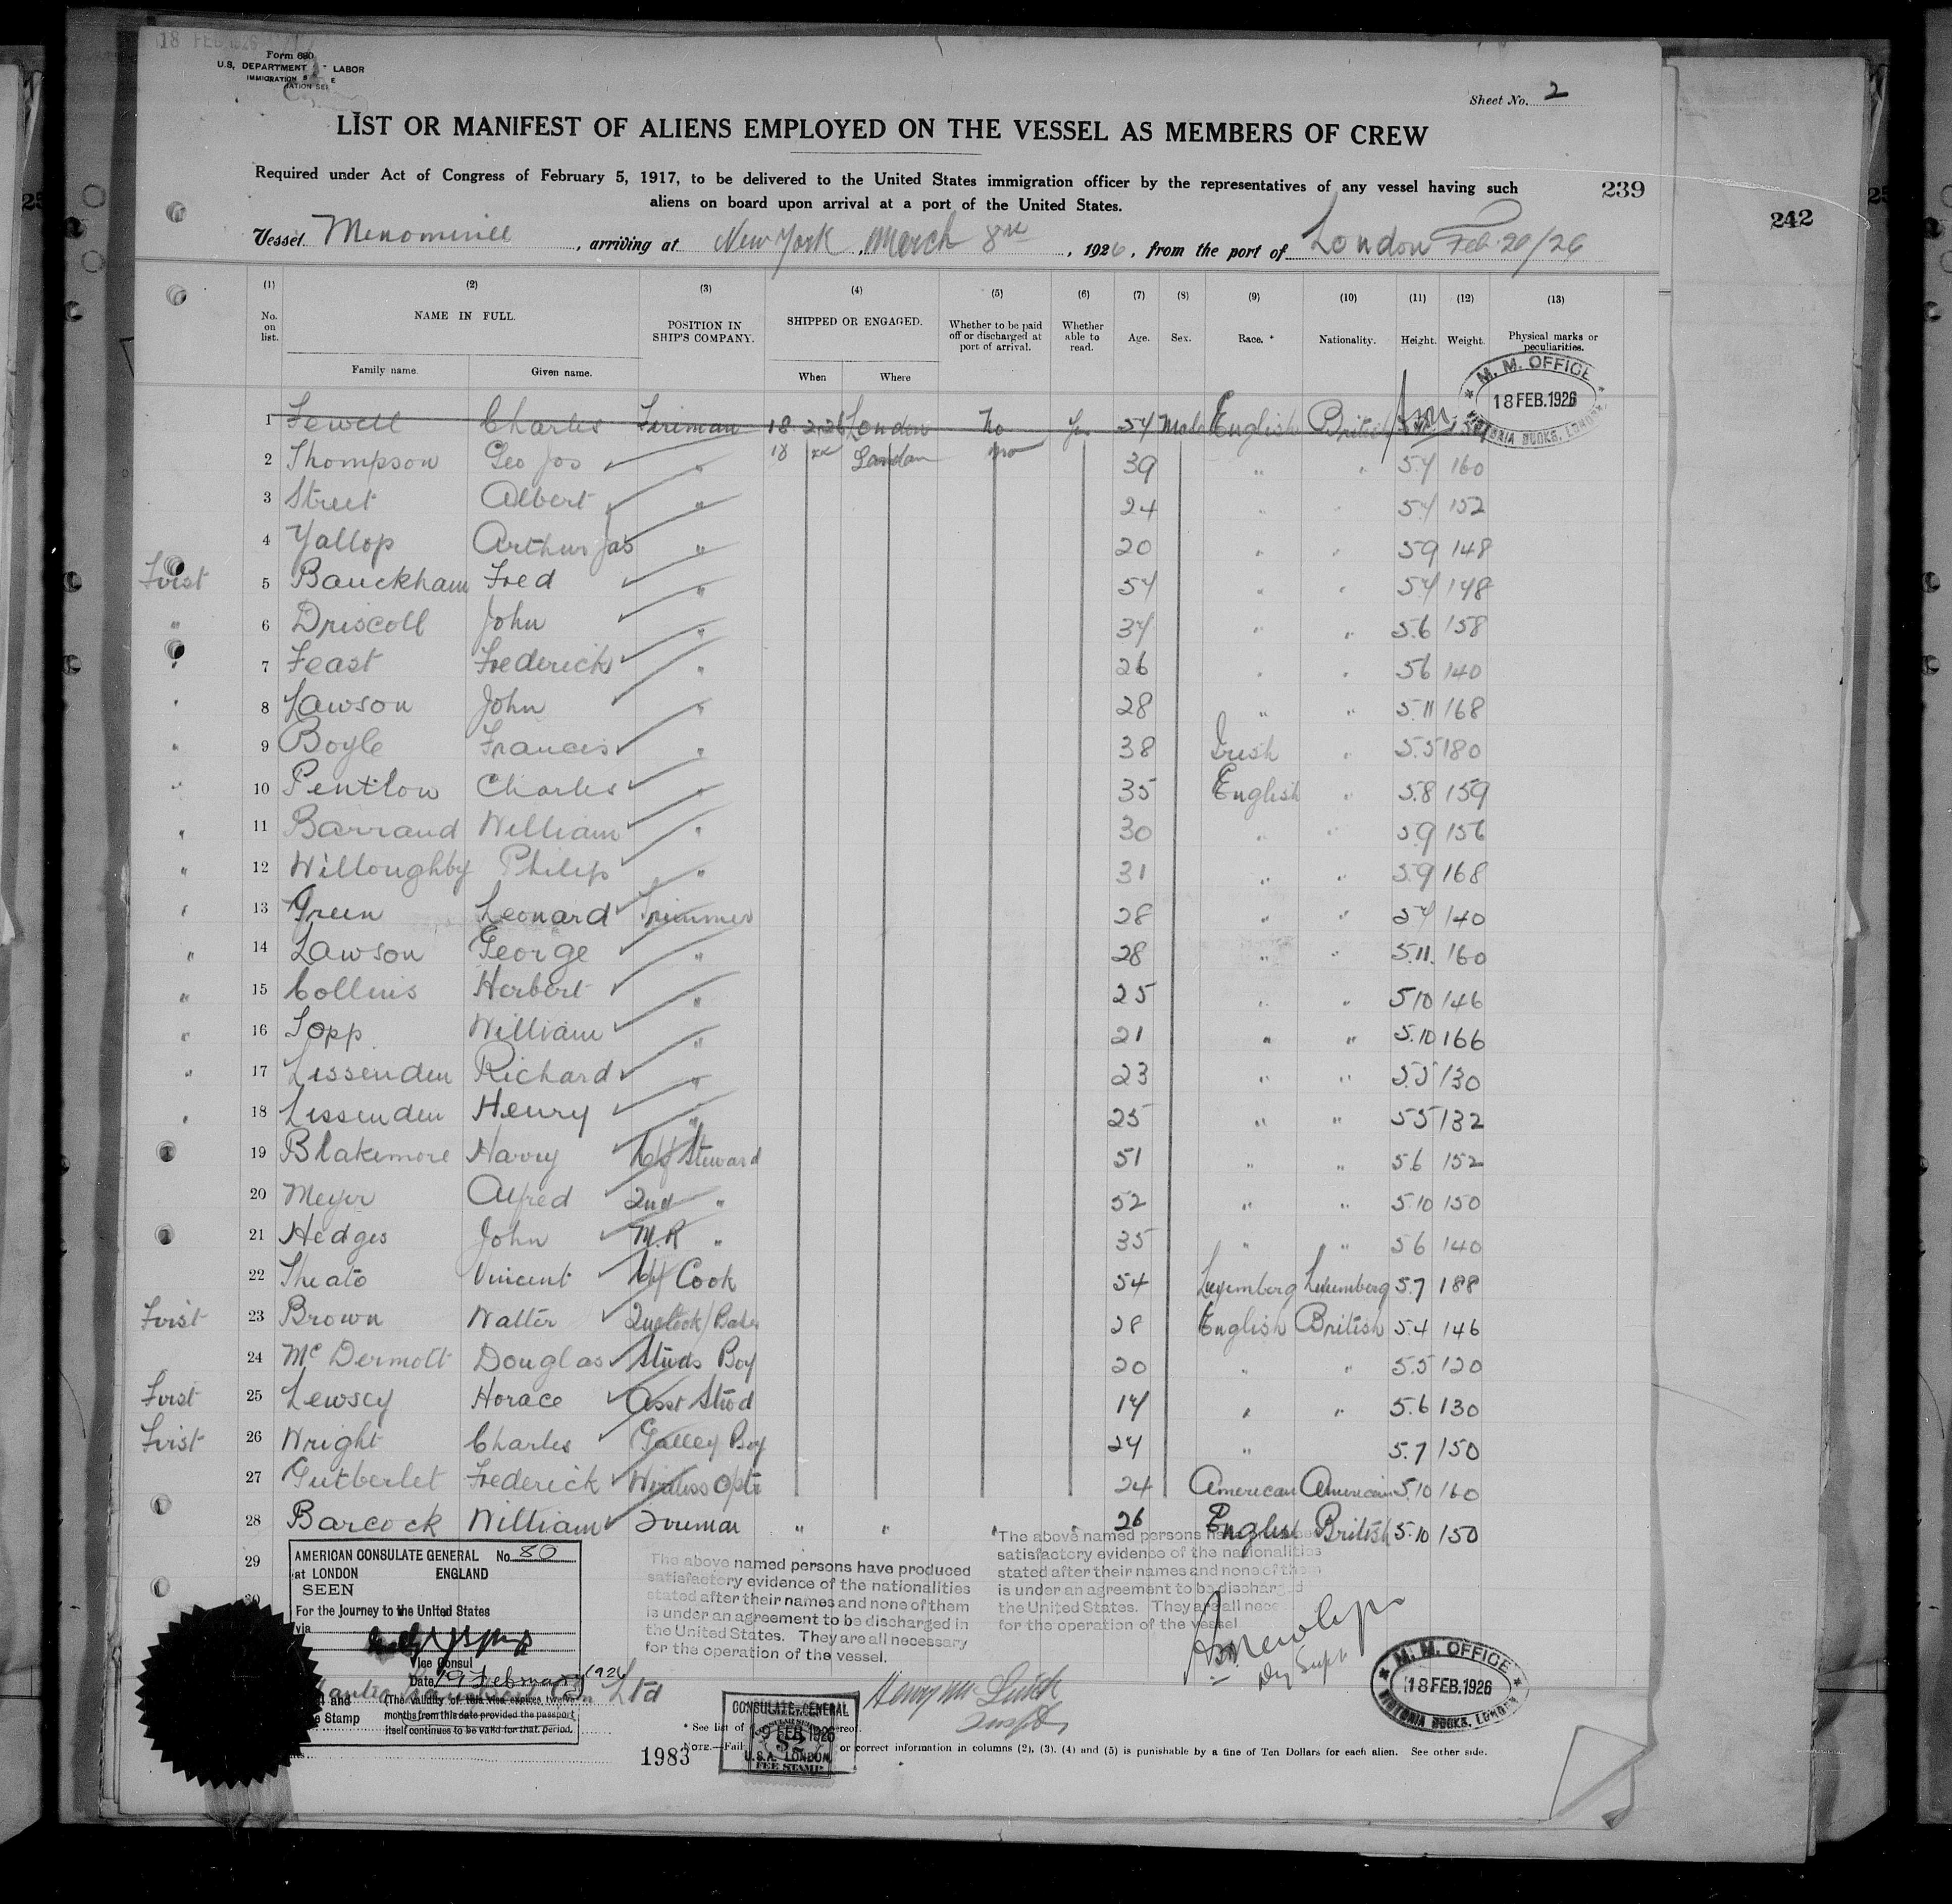 18 FEB 1926
Form 680
U.S. DEPARTMENT OF LABOR
IMMIGRATION
Sheet No. 2
LIST OR MANIFEST OF ALIENS EMPLOYED ON THE VESSEL AS MEMBERS OF CREW
Required under Act of Congress of February 5, 1917, to be delivered to the United States immigration officer by the representatives of any vessel having such
aliens on board upon arrival at a port of the United States.
239
242
Vessel Menominee, arriving at New York, March 8th, 1926, from the port of London Feb 20/26
(1) (2) (3) (4) (5) (6) (7) (8) (9) (10) (11) (12) (13)
No. on list. NAME IN FULL. POSITION IN SHIP'S COMPANY. SHIPPED OR ENGAGED. Whether to be paid off or discharged at port of arrival. Whether able to read. Age. Sex. Race.* Nationality. Height. Weight. Physical marks or peculiarities.
Family name. Given name. When Where
M. M. OFFICE
18 FEB. 1926
VICTORIA DOCKS, LONDON
1 Fewell Charles Fireman 18 2.26 London No Yes 54 Male English British
2 Thompson Geo Jos " 18 London No 39 " " 5.4 160
3 Street Albert " 24 " " 5.4 152
4 Yallop Arthur Jas " 20 " " 5.9 148
First 5 Bauckham Fred " 54 " " 5.4 148
" 6 Driscoll John " 34 " " 5.6 158
" 7 Feast Frederick " 26 " " 5.6 140
" 8 Lawson John " 28 " " 5.11 168
" 9 Boyle Francis " 38 Irish " 5.5 180
" 10 Pentlow Charles " 35 English " 5.8 159
" 11 Barraud William " 30 " " 5.9 156
" 12 Willoughby Philip " 31 " " 5.9 168
" 13 Green Leonard Trimmer 28 " " 5.4 140
" 14 Lawson George " 28 " " 5.11. 160
" 15 Collins Herbert " 25 " " 5.10 146
" 16 Topp William " 21 " " 5.10 166
" 17 Lissenden Richard " 23 " " 5.5 130
" 18 Lissenden Henry " 25 " " 5.5 132
19 Blakemore Harry Chf Steward 51 " " 5.6 152
20 Meyer Alfred 2nd " 52 " " 5.10 150
21 Hedges John M.R " 35 " " 5.6 140
22 Theato Vincent Chf Cook 54 Luxemberg Luxemberg 5.7 188
First 23 Brown Walter 2nd Cook/Baker 28 English British 5.4 146
24 McDermott Douglas Stwds Boy 20 " " 5.5 120
First 25 Lewsey Horace Asst Stwd 14 " " 5.6 130
First 26 Wright Charles Galley Boy 24 " 5.7 150
27 Gutberlet Frederick Wireless Optr 24 American American 5.10 160
28 Barcock William Fireman " " " " 26 English British 5.10 150
29
30
AMERICAN CONSULATE GENERAL No. 80
at LONDON ENGLAND
SEEN
For the Journey to the United States
via
Vice Consul
Date 19 February 1926
(The validity of this visa expires twelve
months from this date provided the passport
itself continues to be valid for that period.
and
Stamp
Ltd
The above named persons have produced
satisfactory evidence of the nationalities
stated after their names and none of them
is under an agreement to be discharged in
the United States. They are all necessary
for the operation of the vessel.
The above named persons
satisfactory evidence of the nationalities
stated after their names and none of them
is under an agreement to be discharged
the United States. They are all nece
for the operation of the vessel
M. M. OFFICE
18 FEB. 1926
VICTORIA DOCKS, LONDON
CONSULATE GENERAL
19 FEB 1926
$2
U.S.A. LONDON
FEE STAMP
* See list of
NOTE.—Fail or correct information in columns (2), (3), (4) and (5) is punishable by a fine of Ten Dollars for each alien. See other side.
1983